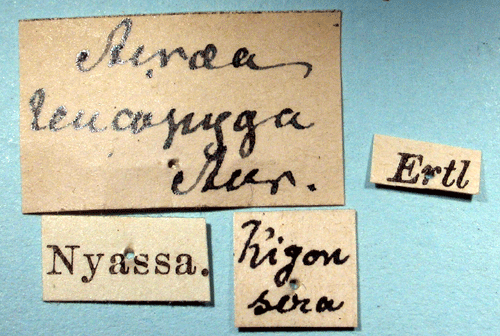 Acræa
leucopyga
Aur.
Ertl
Nyassa.
Kigon
sera